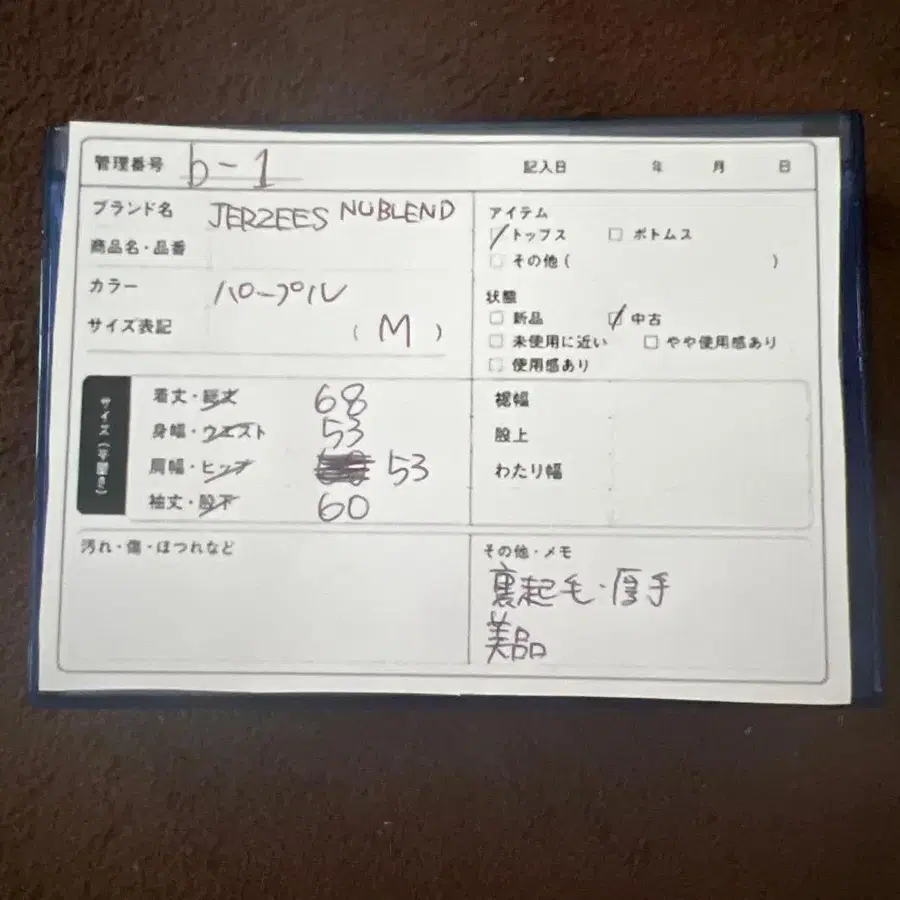 管理番号 b-1 記入日 年 月 日
ブランド名 JERZEES NUBLEND
商品名・品番
カラー パープル
サイズ表記 (M)
アイテム
トップス ボトムス
その他( )
状態
新品 中古
未使用に近い やや使用感あり
使用感あり
サイズ(平置き)
着丈・総丈 68
身幅・ウエスト 53
肩幅・ヒップ 53
袖丈・股下 60
裾幅
股上
わたり幅
汚れ・傷・ほつれなど
その他・メモ
裏起毛・厚手
美品